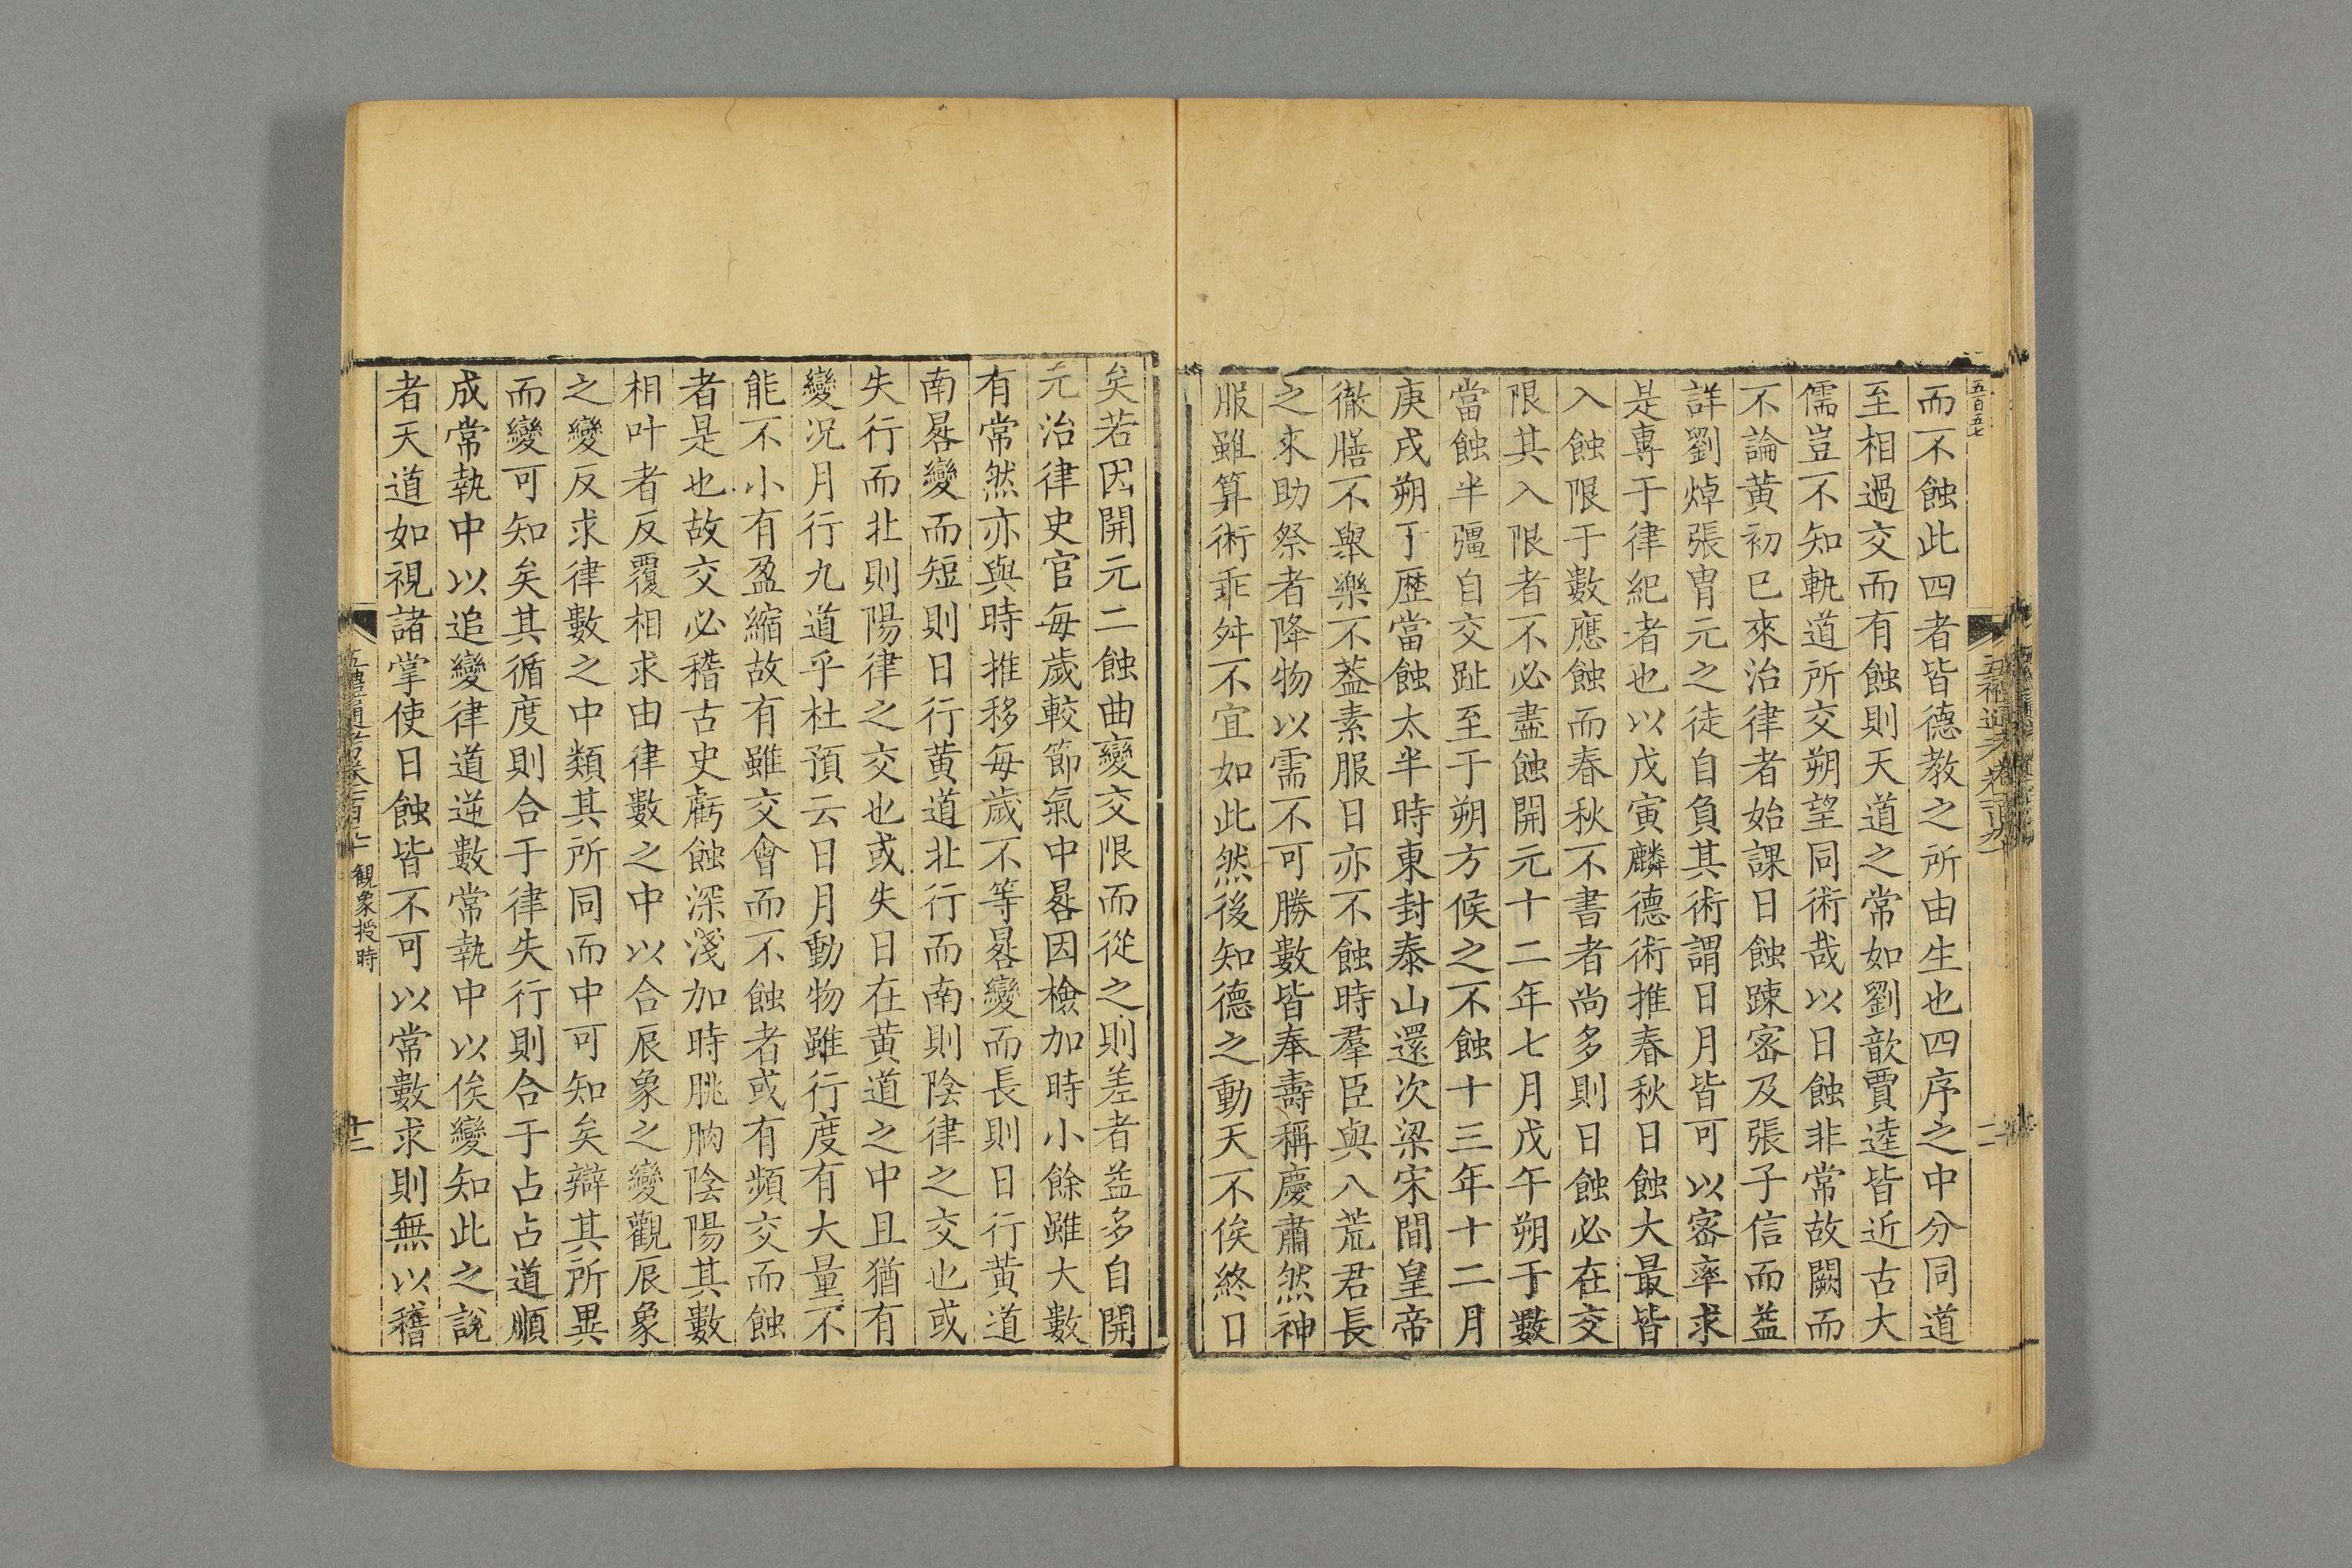 五百五七
而不蝕此四者皆德教之所由生也四序之中分同道
至相過交而有蝕則天道之常如劉歆賈逵皆近古大
儒豈不知軌道所交朔望同術哉以日蝕非常故闕而
不論黃初巳來治律者始課日蝕踈宻及張子信而益
詳劉焯張胄元之徒自負其術謂日月皆可以宻率求
是專于律紀者也以戊寅麟德術推春秋日蝕大最皆
入蝕限于數應蝕而春秋不書者尚多則日蝕必在交
限其入限者不必盡蝕開元十二年七月戊午朔于數
當蝕半彊自交趾至于朔方候之不蝕十三年十二月
庚戌朔于歷當蝕太半時東封泰山還次梁宋間皇帝
徹膳不舉樂不葢素服日亦不蝕時羣臣與八荒君長
之來助祭者降物以需不可勝數皆奉壽稱慶肅然神
服雖算術乖舛不宜如此然後知德之動天不俟終日
矣若因開元二蝕曲變交限而從之則差者益多自開
元治律史官每歲較節氣中晷因檢加時小餘雖大數
有常然亦與時推移每歲不等晷變而長則日行黃道
南晷變而短則日行黃道北行而南則陰律之交也或
失行而北則陽律之交也或失日在黃道之中且猶有
變况月行九道乎杜預云日月動物雖行度有大量不
能不小有盈縮故有雖交會而不蝕者或有頻交而蝕
者是也故交必稽古史虧蝕深淺加時朓朒陰陽其數
相叶者反覆相求由律數之中以合辰象之變觀辰象
之變反求律數之中類其所同而中可知矣辯其所異
而變可知矣其循度則合于律失行則合于占占道順
成常執中以追變律道逆數常執中以俟變知此之說
者天道如視諸掌使日蝕皆不可以常數求則無以稽
觀象授時
十二